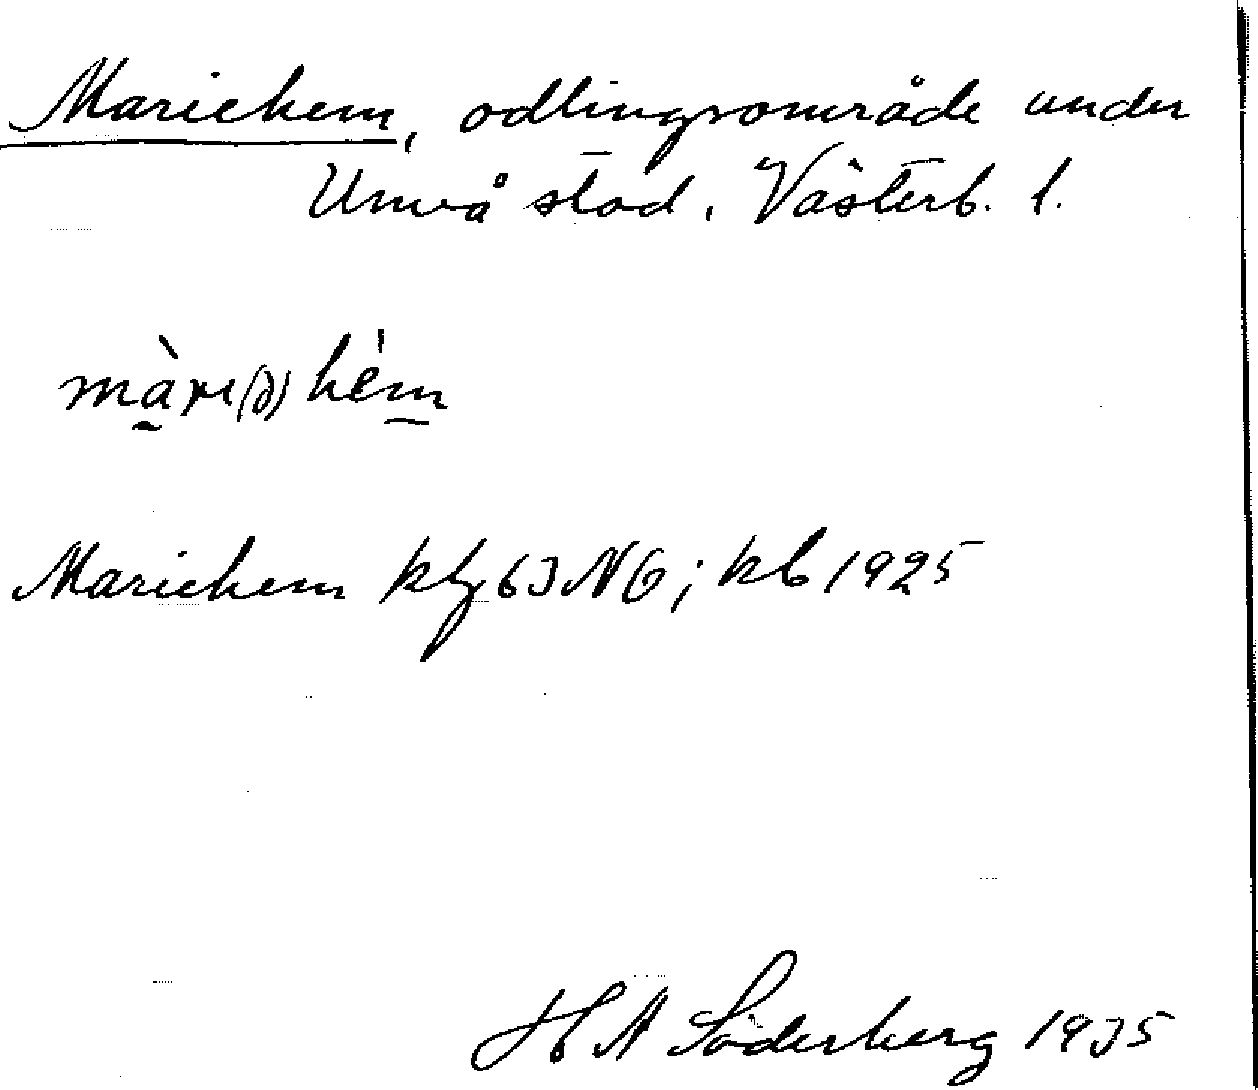 Mariehem, odlingsområde under
Umeå stad, Västerb. l.
màri(ə)hèm
Mariehem klg 63 NG; kb 1925
H A Söderberg 1935